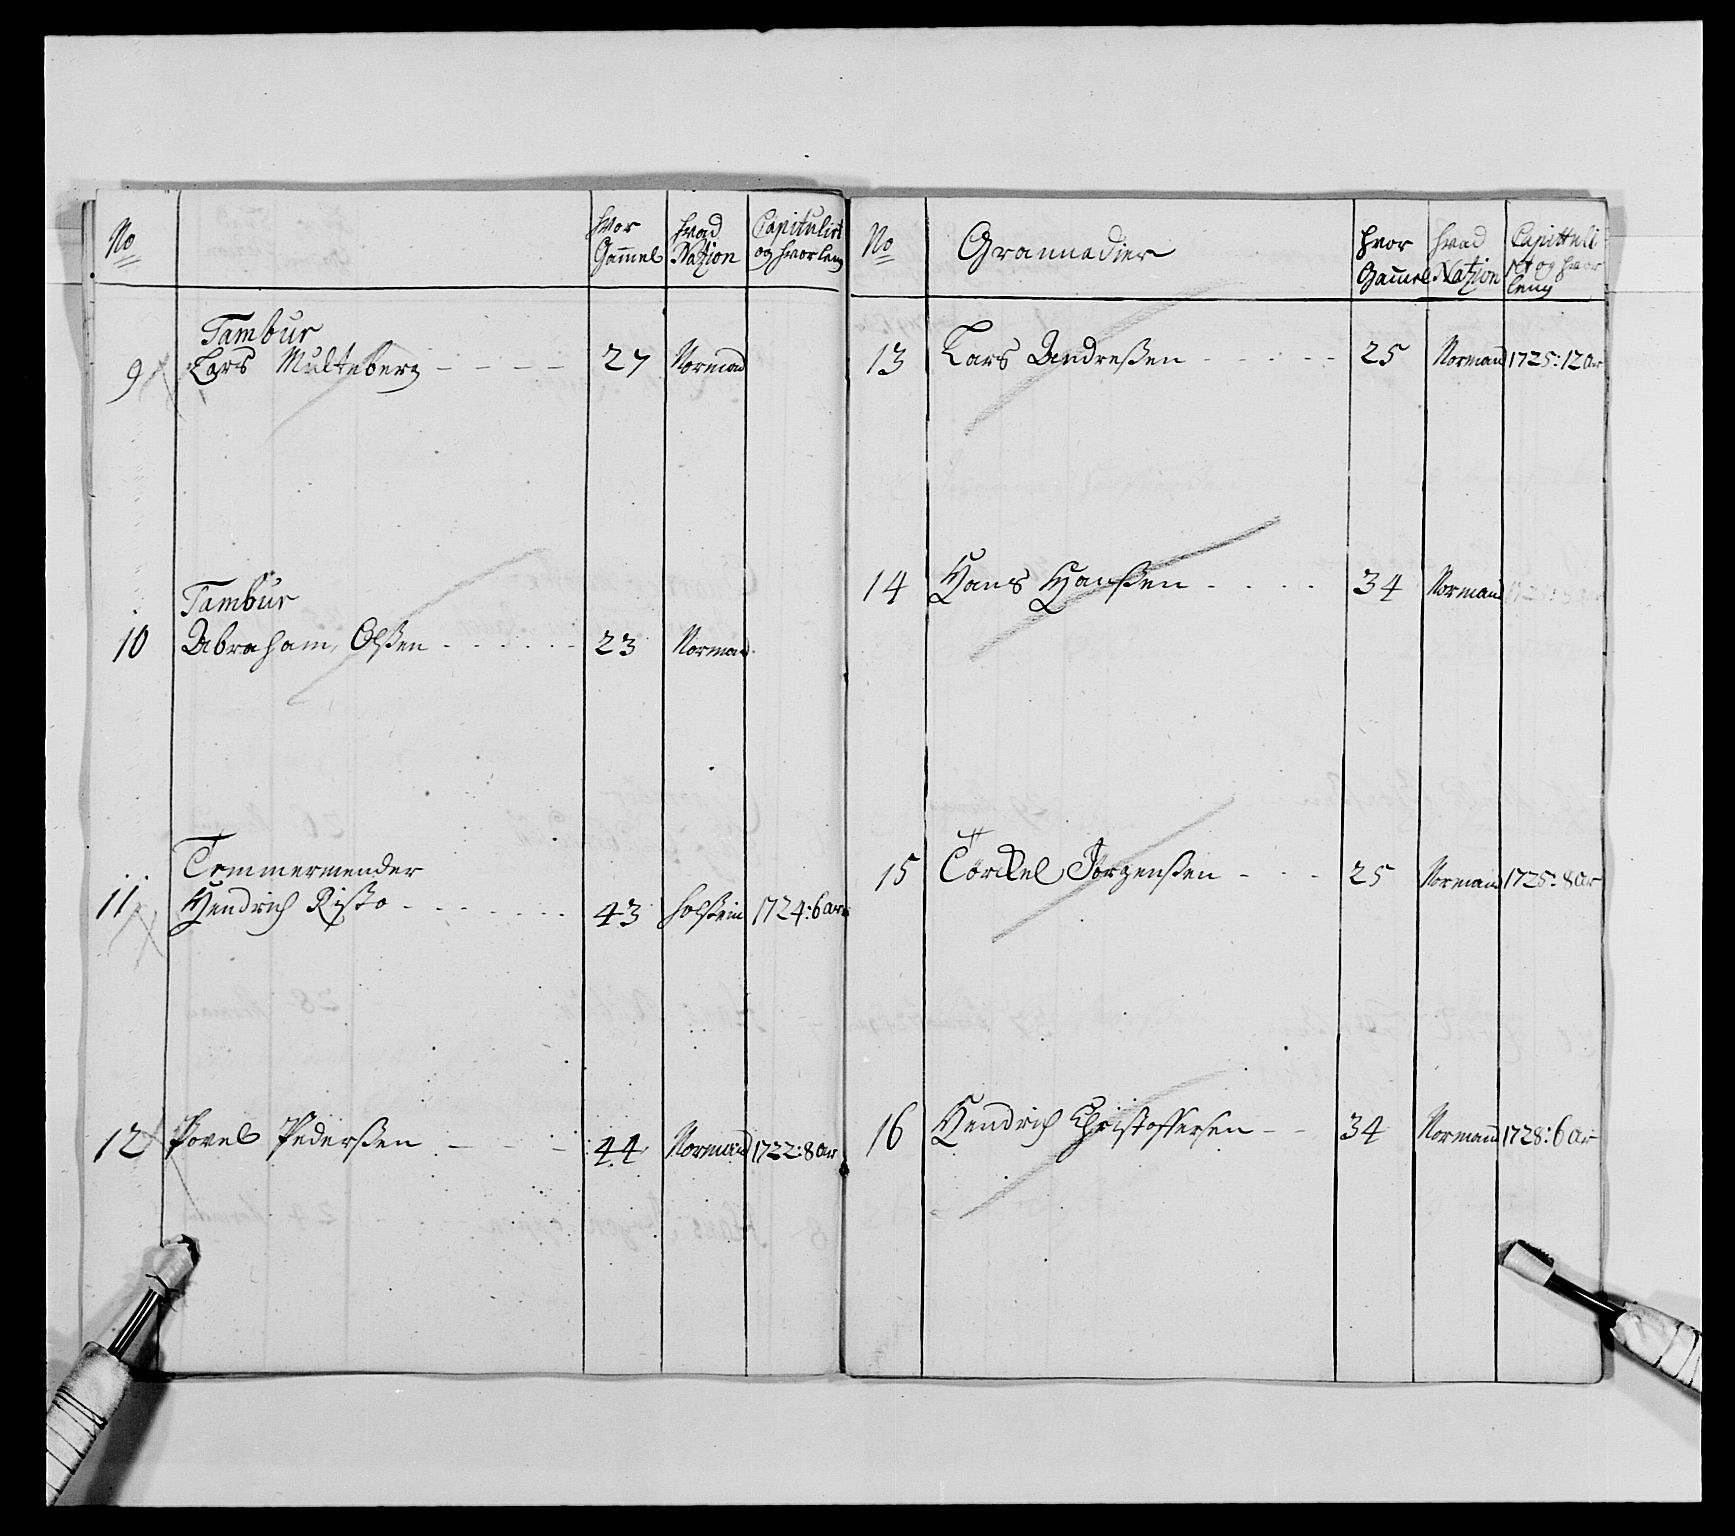 No
hvor Gam̄el
hvad Nation
Capitulirt og hvor leng
Tambur
9 Lars Multeberg - - - - 27 Normand
Tambur
10 Abraham Olßen - - - - - - 23 Normand
Temmermender
11 Hendrich Risto - - - - - - - 43 Holstein 1724: 6 Aar
12 Povel Pederßen - - - - 44 Normand 1722: 8 Aar
No
Grannadier
hvor Gam̄el
hvad Nation
Capittuli rt og hvor leng
13 Lars Andreßen - - - - - - 25 Normand 1725: 12 Aar
14 Hans Hanßen - - - - 34 Normand
15 Törckel Jörgenßen - - - 25 Normand 1725: 8 Aar
16 Hendrich Christoffersen - - 34 Normand 1728: 6 Aar